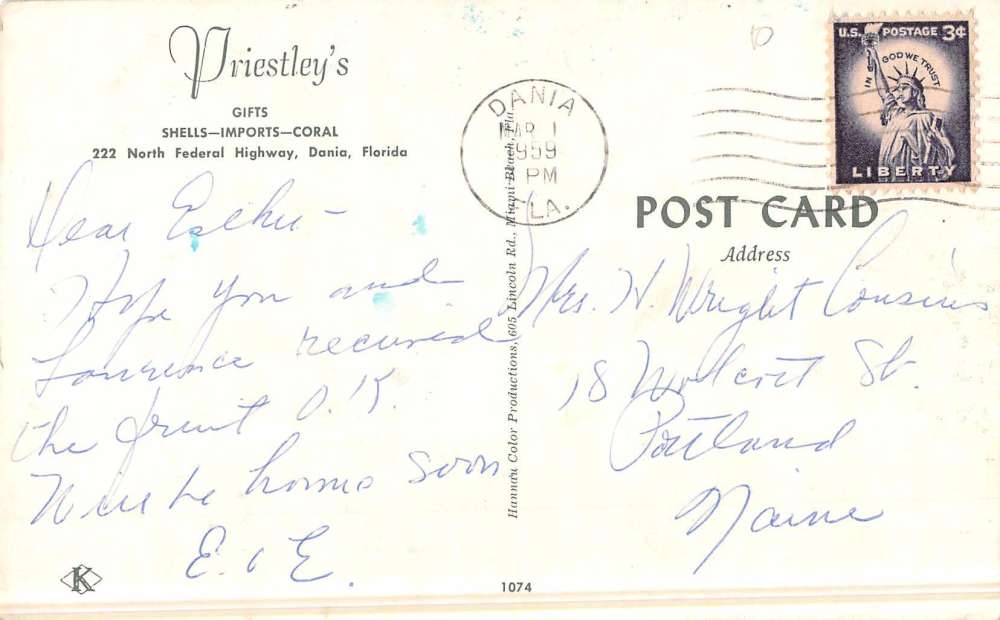 Priestley's
GIFTS
SHELLS—IMPORTS—CORAL
222 North Federal Highway, Dania, Florida
Dear Esther —
Hope you and
Lawrence received
the fruit O.K.
Will be home soon
E. & E.
K
DANIA
MAR 1
1959
PM
FLA.
U.S. POSTAGE 3¢
IN GOD WE TRUST
LIBERTY
POST CARD
Address
Mrs. H. Wright Cousins
18 St.
Portland
Maine
Hannau Color Productions, 605 Lincoln Rd., Miami Beach, Fla.
1074